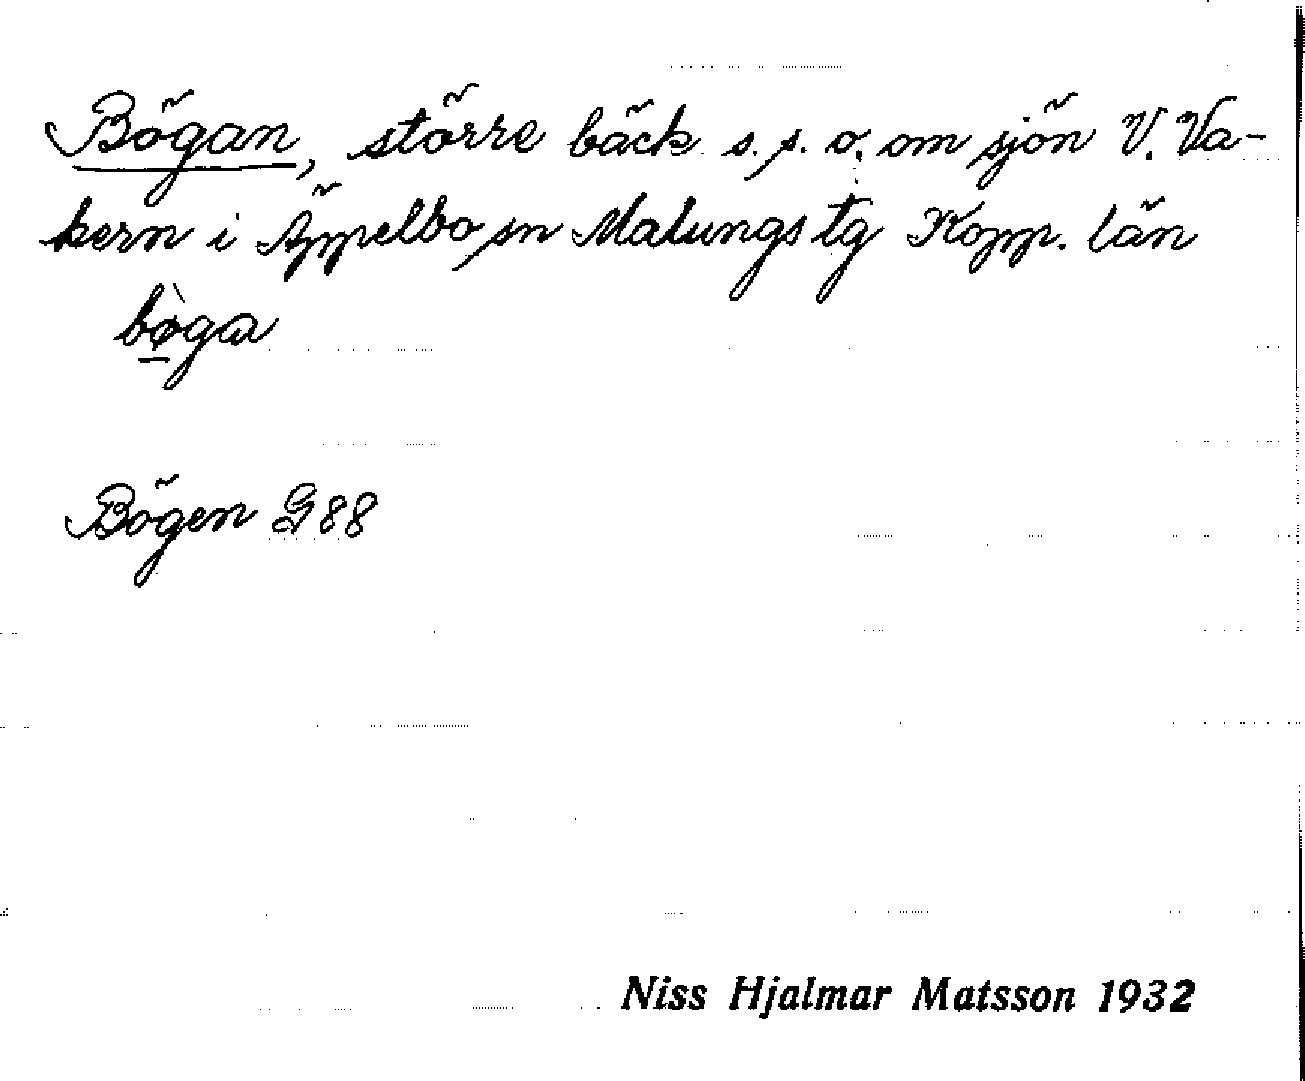 Bögan, större bäck s. s. o. om sjön V. Va-
kern i Äppelbo sn Malungs tg Kopp. län
bø̀ga
Bögen G 88
Niss Hjalmar Matsson 1932